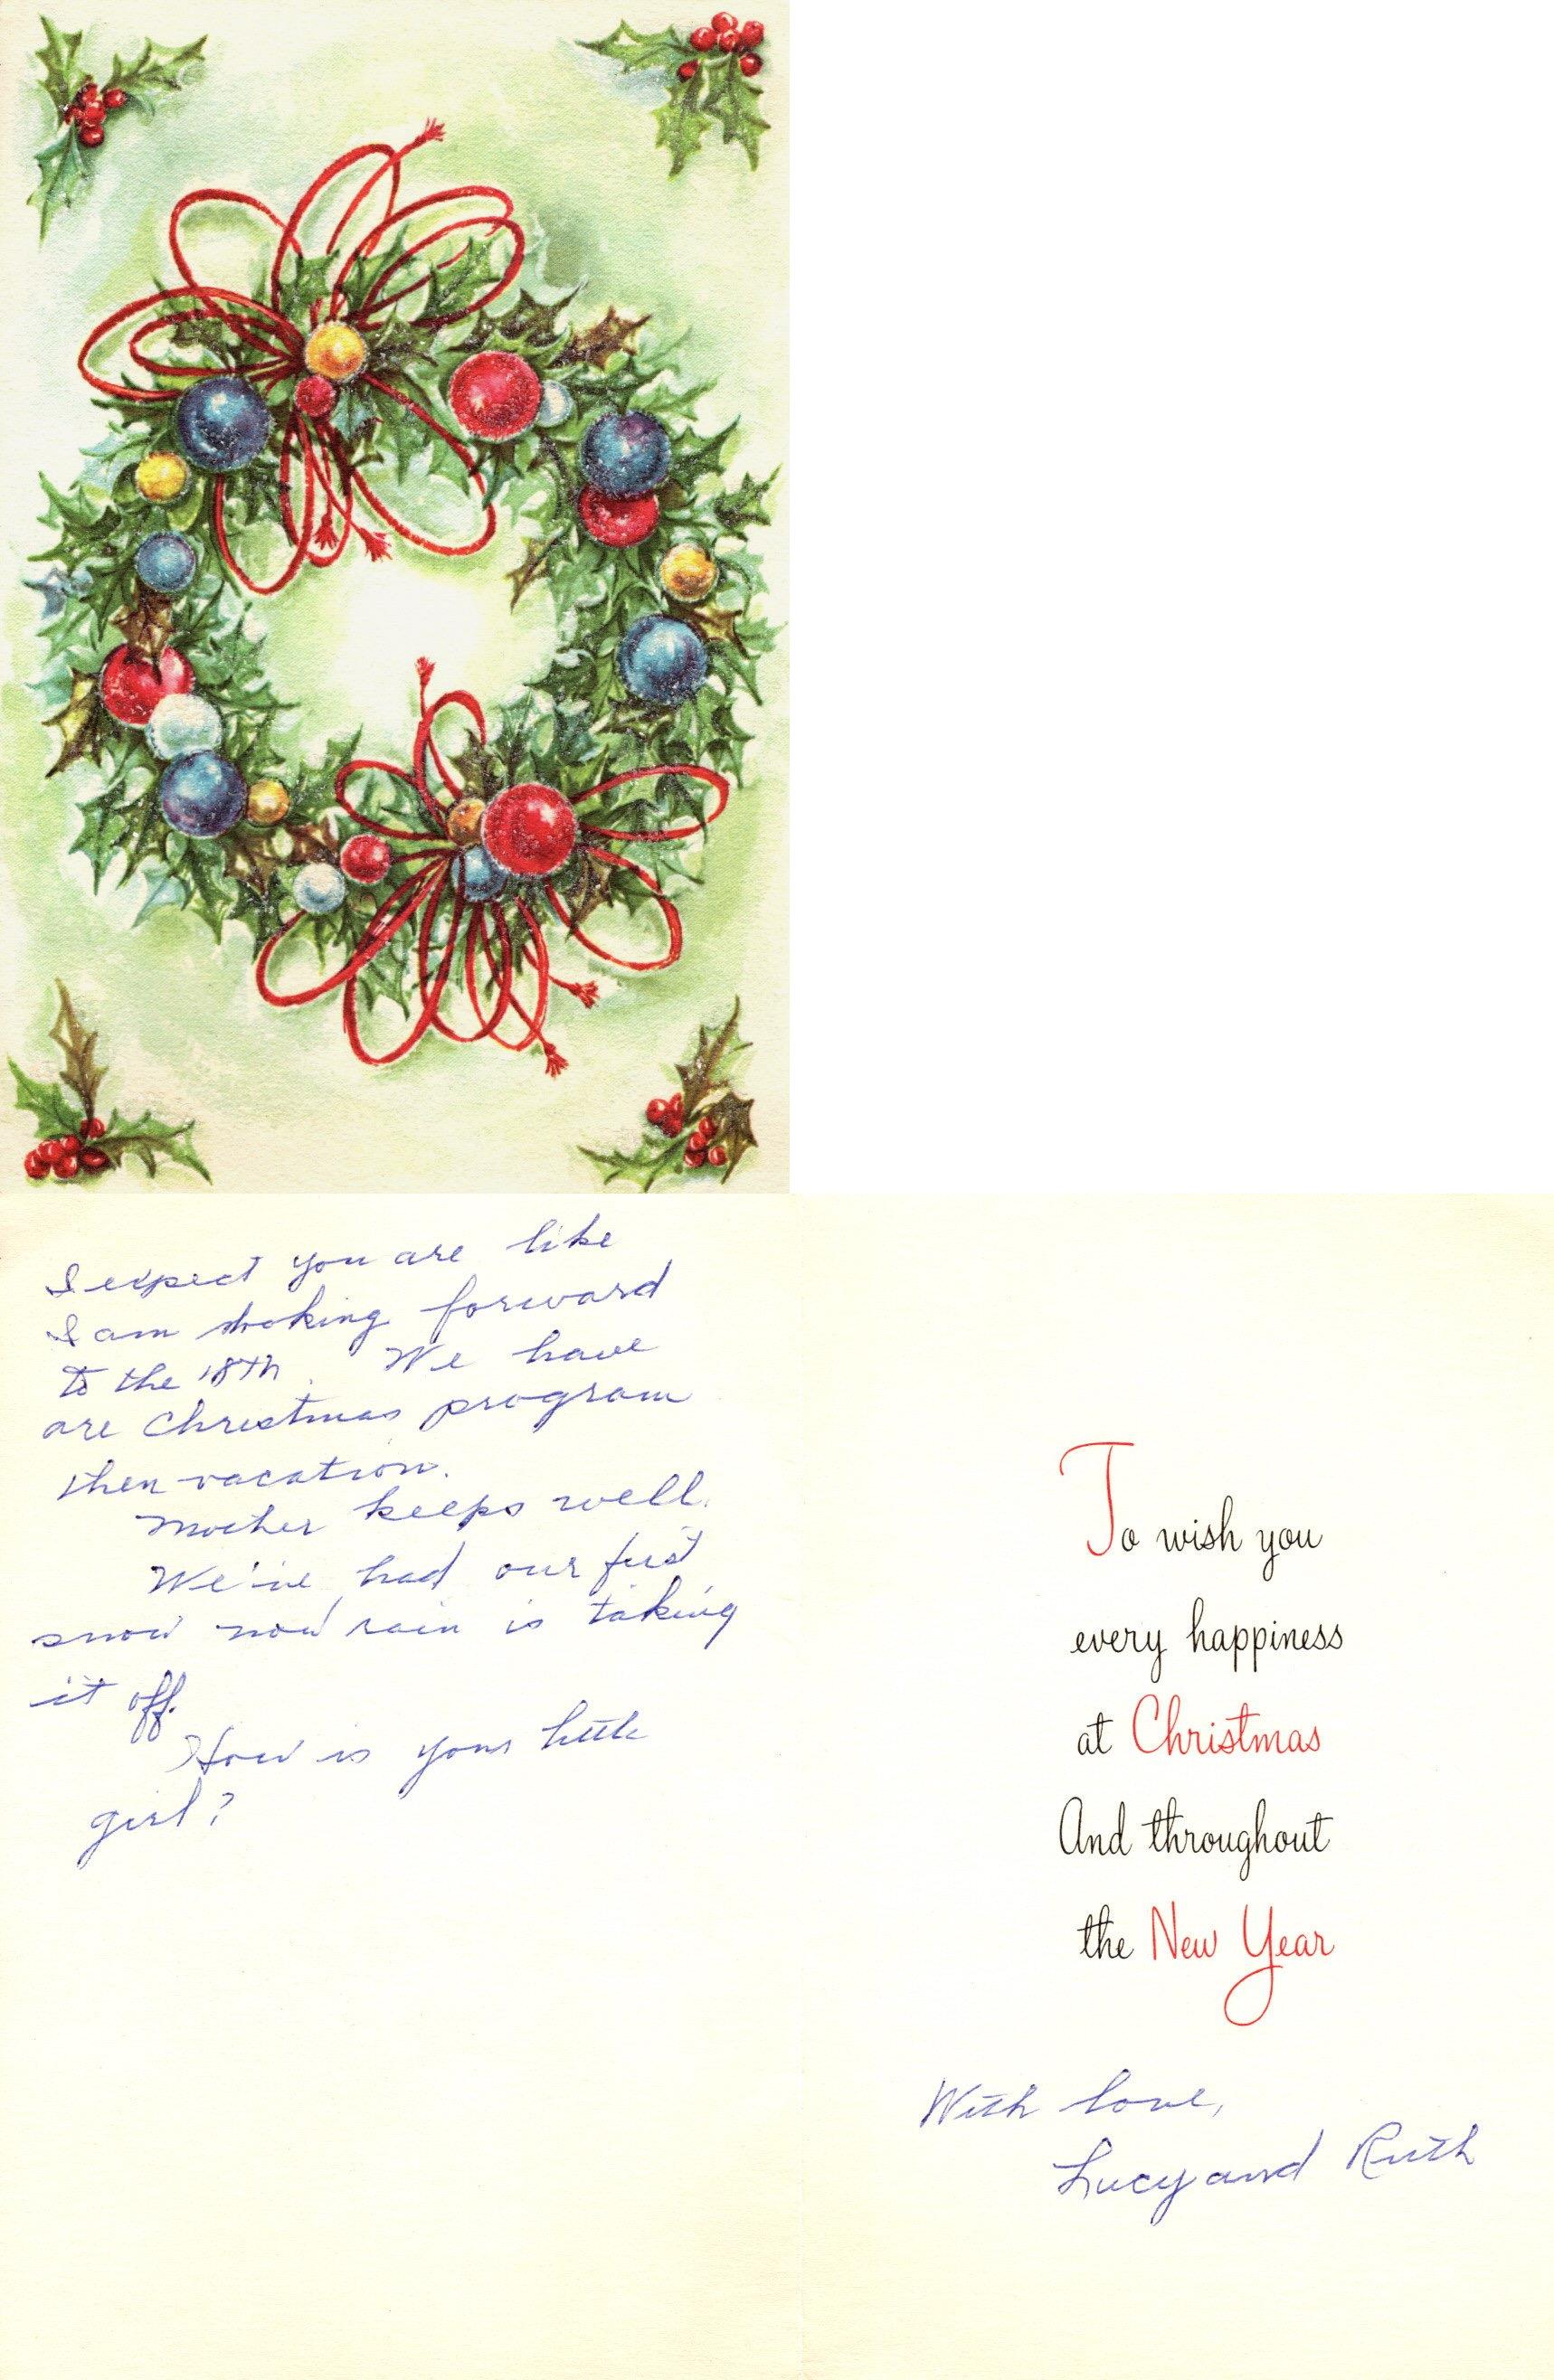 I expect you are like
I am looking forward
to the 18th. We have
are Christmas program
then vacation.
Mother keeps well.
We've had our first
snow now rain is taking
it off.
How is your little
girl?
To wish you
every happiness
at Christmas
And throughout
the New Year
With love,
Lucy and Ruth